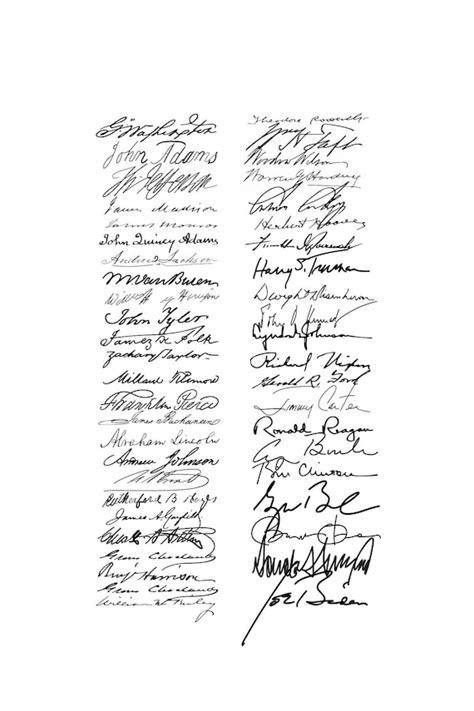 G. Washington
John Adams
Th. Jefferson
James Madison
James Monroe
John Quincy Adams
Andrew Jackson
M Van Buren
John Tyler
James K Polk
Zachary Taylor
Millard Fillmore
Franklin Pierce
James Buchanan
Abraham Lincoln
Andrew Johnson
Rutherford B Hayes
James A. Garfield
Chester A Arthur
Grover Cleveland
Benj Harrison
Grover Cleveland
William McKinley
Theodore Roosevelt
Wm H Taft
Woodrow Wilson
Warren G Harding
Calvin Coolidge
Herbert Hoover
Franklin D Roosevelt
Harry S. Truman
Dwight D Eisenhower
John F Kennedy
Lyndon B Johnson
Richard Nixon
Gerald R. Ford
Jimmy Carter
Ronald Reagan
G Bush
Bill Clinton